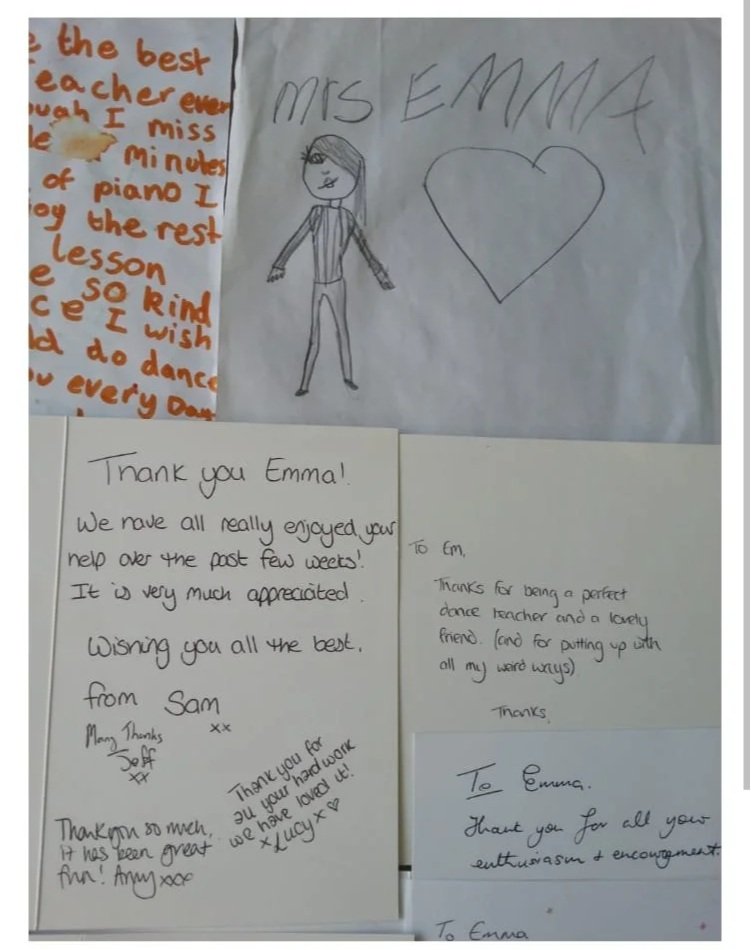 the best
teacher ever
I miss
minutes
of piano I
the rest
lesson
so kind
I wish
do dance
every Day
mrs EMMA
Thank you Emma!
We have all really enjoyed your
help over the past few weeks!
It is very much appreciated.
Wishing you all the best.
from Sam
xx
Many Thanks
Jeff
xx
Thank you for
all your hard work
we have loved it!
x Lucy x ♡
Thankyou so much,
it has been great
fun! Amy xxx
To Em,
Thanks for being a perfect
dance teacher and a lovely
friend. (and for putting up with
all my weird ways)
Thanks,
To Emma.
Thank you for all your
enthusiasm + encouragement.
To Emma